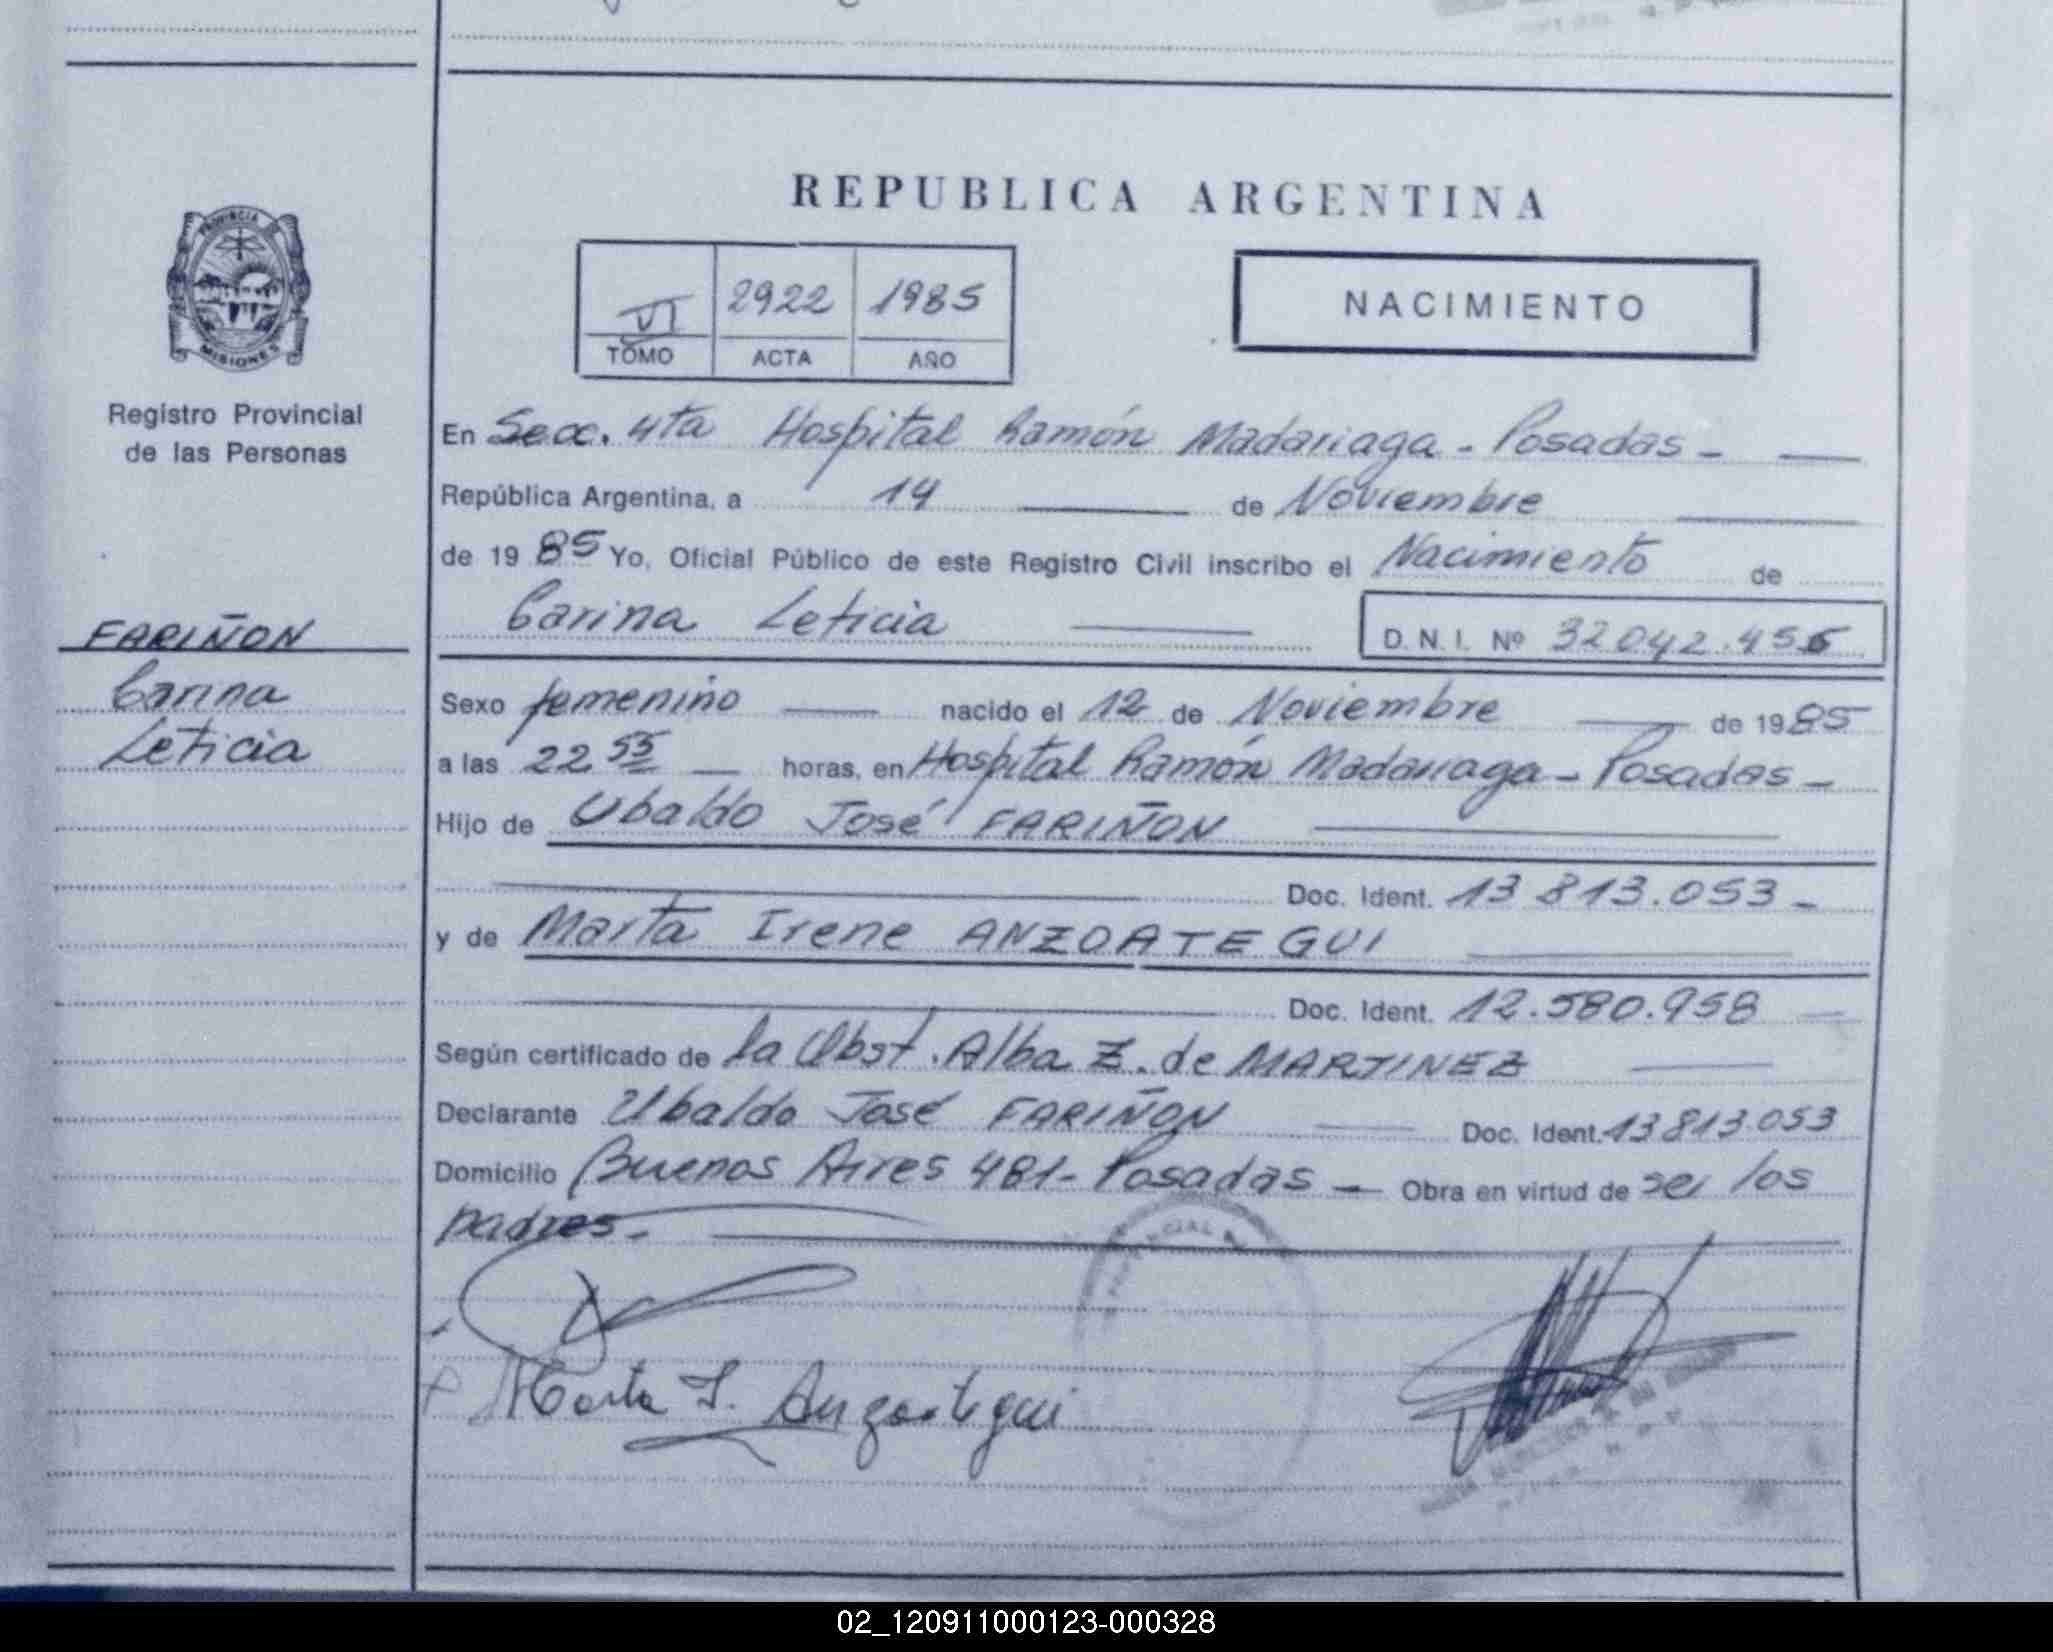 REPUBLICA ARGENTINA
PROVINCIA
MISIONES
Registro Provincial
de las Personas
FARIÑON
Carina
Leticia
VI 2922 1985
TOMO ACTA AÑO
NACIMIENTO
En Secc. 4ta Hospital Ramón Madariaga - Posadas -
República Argentina, a 14 de Noviembre
de 1985 Yo, Oficial Público de este Registro Civil inscribo el Nacimiento de
Carina Leticia D. N. I. Nº 32042.456
Sexo femenino nacido el 12 de Noviembre de 1985
a las 22 55 horas, en Hospital Ramón Madariaga - Posadas -
Hijo de Ubaldo José FARIÑON
Doc. Ident. 13 813.053 -
y de Marta Irene ANZOATEGUI
Doc. Ident. 12.580.958
Según certificado de la Obst. Alba Z. de MARTINEZ
Declarante Ubaldo José FARIÑON Doc. Ident. 13813.053
Domicilio Buenos Aires 481 - Posadas - Obra en virtud de ser los
padres -
Marta I. Anzoategui
02_120911000123-000328